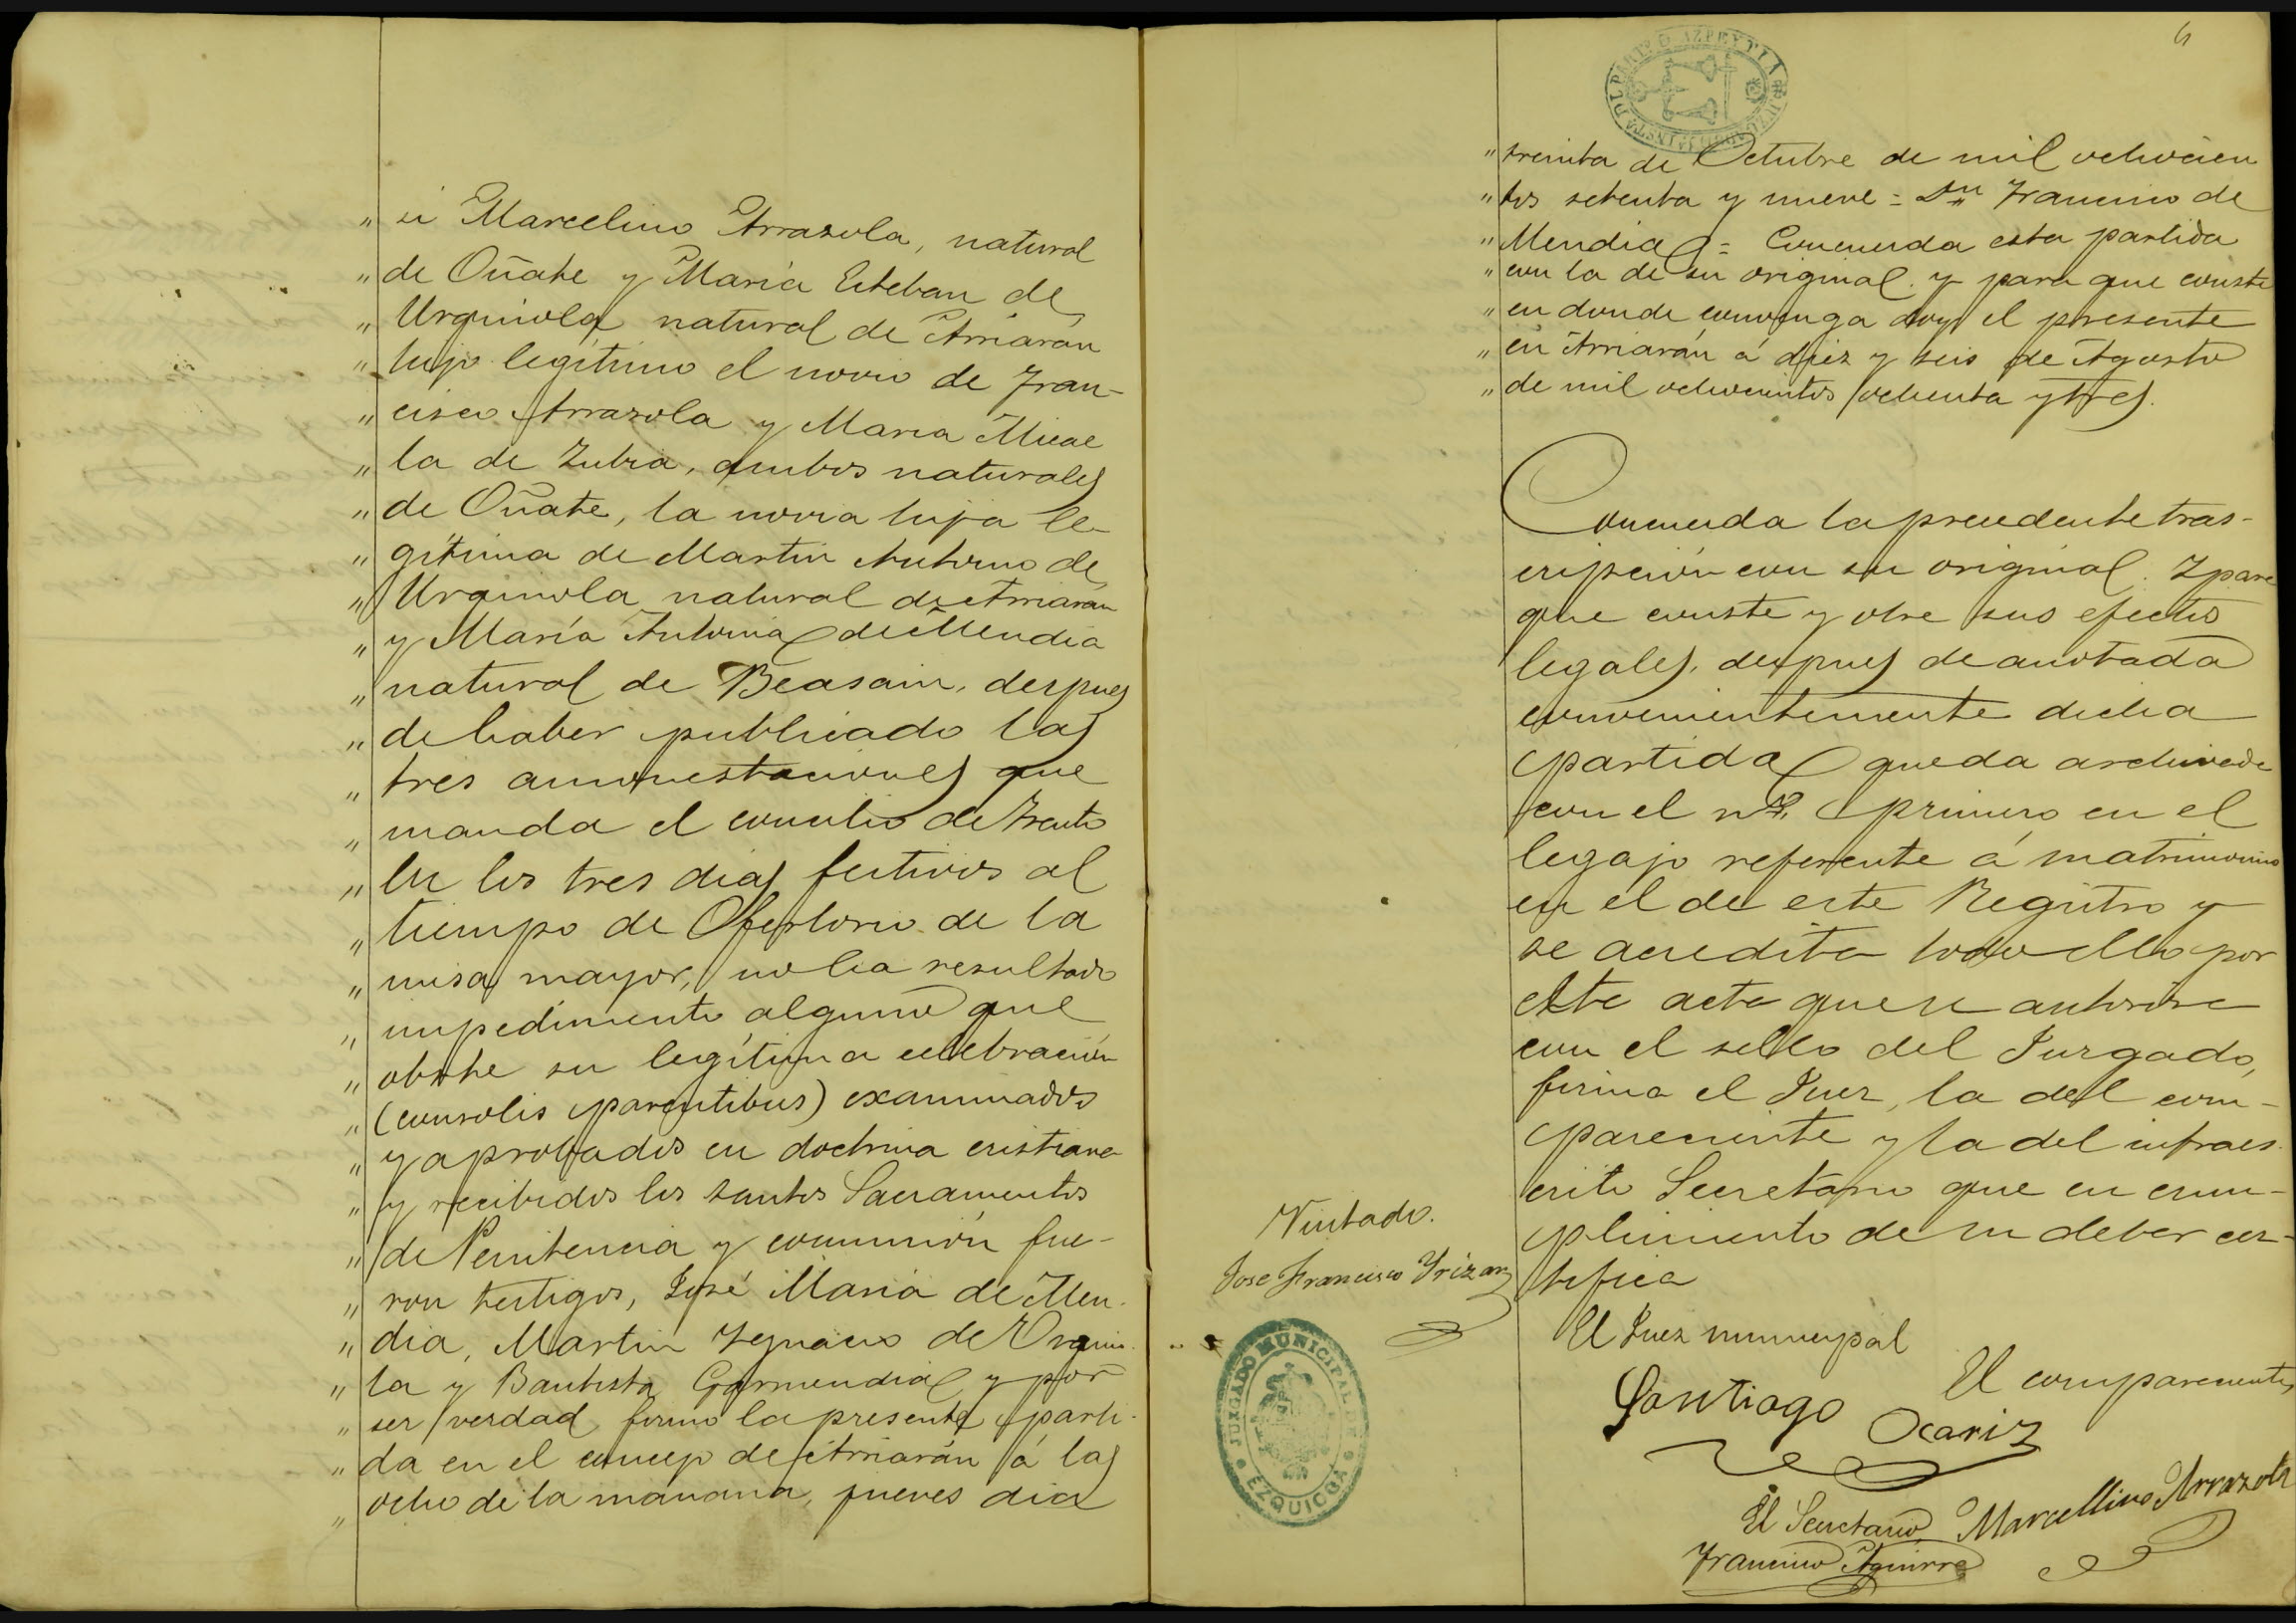 " ei Marcelino Arrazola, natural
" de Oñate y María Esteban de
" Urquiola natural de Arriarán
" hijo legítimo el novio de Fran-
" cisco Arrazola y Maria Micae
" la de Zubia, ambos naturales
" de Oñate, la novia hija le-
" gítima de Martin Antonio de
" Urquiola natural de Arriarán
" y María Antonia de Mendia
" natural de Beasain, despues
" de haber publicado las
" tres amonestaciones que
" manda el concilio de Trento
" En los tres dias festivos al
" tiempo de Ofertorio de la
" misa mayor, no ha resultado
" impedimento alguno que
" obste su legítima celebración
" (consolis parentibus) examinados
" y aprobados en doctrina cristiana
" y recibidos los santos Sacramentos
" de Penitencia y comunión fue-
" ron testigos, José María de Men-
" dia, Martin Ygnacio de Urquio-
" la y Bautista Garmendia y por
" ser verdad firmo la presente parti-
" da en el concejo de Arriarán á las
" ocho de la mañana, jueves dia
4
PARTIDO AZPEYTIA
" treinta de Octubre de mil ochocien
" tos setenta y nueve = Dn Francisco de
" Mendia = Concuerda esta partida
" con la de su original. y para que conste
" en donde convenga doy el presente
" en Arriarán á diez y seis de Agosto
" de mil ochocientos ochenta y tres.
Concuerda la precedente tras-
cripción con su original. Y para
que conste y obre sus efectos
legales, despues de anotada
convenientemente dicha
partida queda archivada
con el nº primero en el
legajo referente á matrimonio
en el de este Registro y
se acredita todo ello por
este acta que se autoriza
con el sello del Juzgado,
firma el Juez, la del com-
pareciente y la del infraes-
crito Secretario que en cum-
plimiento de su deber cer-
tifica
Visitado.
Jose Francisco Yrizar
JUZGADO MUNICIPAL DE
EZQUIOGA
El Juez municipal
Santiago Ocariz
El compareciente
Marcellino Arrazola
El Secretario
Francisco Aguirre